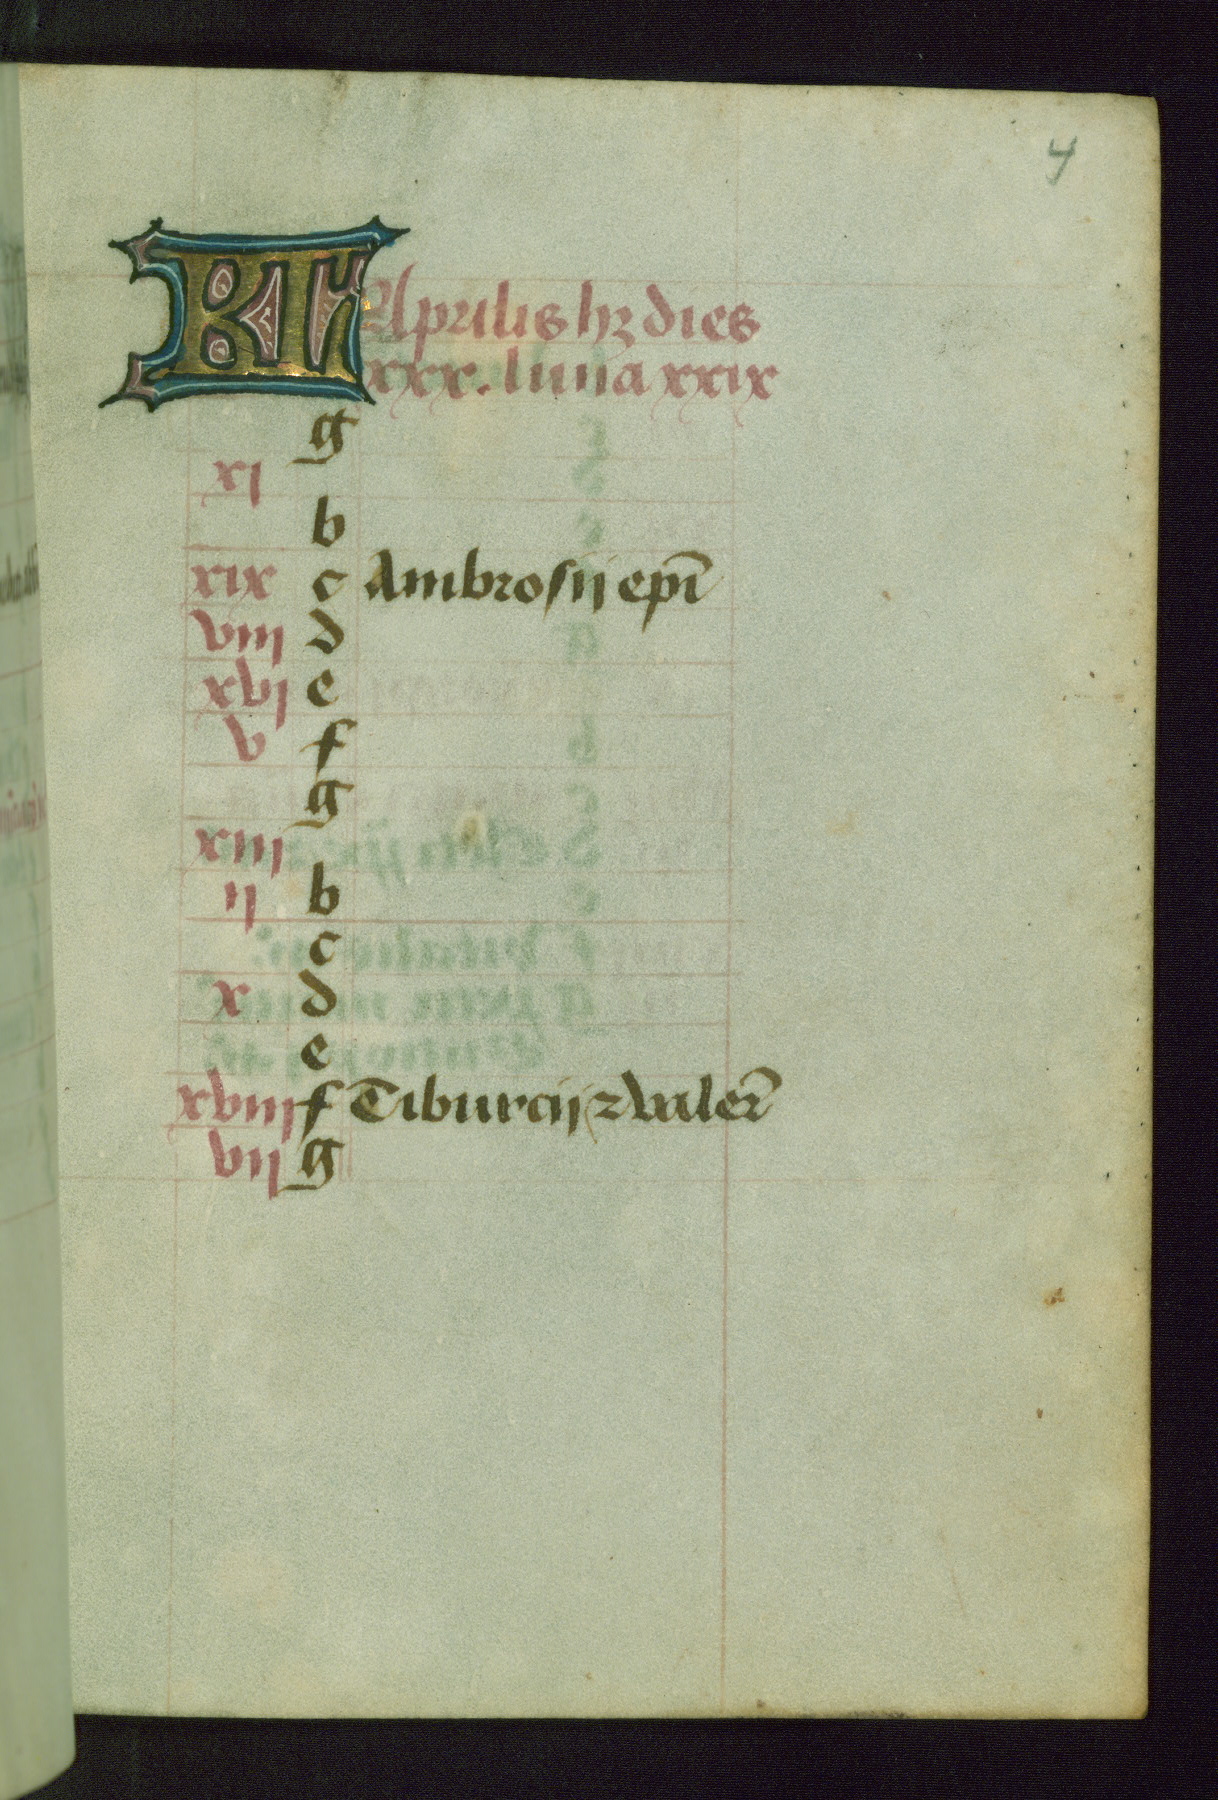 4
KL Aprilis hꝫ dies
xxx. luna xxix
g
xi
b
xix c Ambrosij epī
viii d
xvi e
v f
g
xiii
ij b
c
x d
e
xviii f Tiburcij ⁊ valer̄
vii g